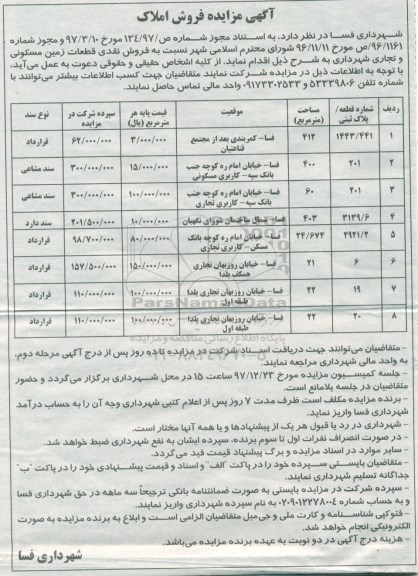 آگهی مزایده فروش املاک
شهرداری فسا در نظر دارد، به استناد مجوز شماره ص/۱۳۴/۹۷ مورخ ۹۷/۳/۱۰ و مجوز شماره
۹۶/۱۱۶۱/ص مورخ ۹۶/۱۱/۱۱ شورای محترم اسلامی شهر نسبت به فروش نقدی قطعات زمین مسکونی
و تجاری شهرداری به شرح ذیل اقدام نماید. از کلیه اشخاص حقیقی و حقوقی دعوت به عمل می‌آید،
با توجه به اطلاعات ذیل در مزایده شرکت نمایند متقاضیان جهت کسب اطلاعات بیشتر می‌توانند با
شماره تلفن ۵۳۳۳۹۸۰۶ و ۰۹۱۷۳۳۰۲۵۳۳ واحد مالی تماس حاصل نمایند.
ردیف شماره قطعه/پلاک ثبتی مساحت (مترمربع) موقعیت قیمت پایه هر مترمربع (ریال) سپرده شرکت در مزایده نوع سند
۱ ۱۴۴۳/۴۴۱ ۴۱۲ فسا- کمربندی بعد از مجتمع قناعتیان ۳/۰۰۰/۰۰۰ ۶۲/۰۰۰/۰۰۰ قرارداد
۲ ۲۰۱ ۴۰۰ فسا- خیابان امام ره کوچه جنب بانک سپه- کاربری مسکونی ۱۵/۰۰۰/۰۰۰ ۳۰۰/۰۰۰/۰۰۰ سند مشاعی
۳ ۲۰۱ ۶۰ فسا- خیابان امام ره کوچه جنب بانک سپه- کاربری تجاری ۱۰۰/۰۰۰/۰۰۰ ۳۰۰/۰۰۰/۰۰۰ سند مشاعی
۴ ۳۱۳۹/۶ ۴۰۳ فسا- شمال ساختمان شورای نگهبان ۱۰/۰۰۰/۰۰۰ ۲۰۱/۵۰۰/۰۰۰ سند دارد
۵ ۲۹۲۱/۲ ۲۴/۶۷۴ فسا- خیابان امام ره کوچه بانک مسکن- کاربری تجاری ۸۰/۰۰۰/۰۰۰ ۹۸/۷۰۰/۰۰۰ قرارداد
۶ ۶ ۲۱ فسا- خیابان روزبهان تجاری همکف یلدا ۱۵۰/۰۰۰/۰۰۰ ۱۵۷/۵۰۰/۰۰۰ قرارداد
۷ ۱۹ ۲۲ فسا- خیابان روزبهان تجاری یلدا طبقه اول ۱۰۰/۰۰۰/۰۰۰ ۱۱۰/۰۰۰/۰۰۰ قرارداد
۸ ۲۰ ۲۲ فسا- خیابان روزبهان تجاری یلدا طبقه اول ۱۰۰/۰۰۰/۰۰۰ ۱۱۰/۰۰۰/۰۰۰ قرارداد
- متقاضیان می‌توانند جهت دریافت اسناد شرکت در مزایده تا ده روز پس از درج آگهی مرحله دوم،
به واحد مالی شهرداری مراجعه نمایند.
- جلسه کمیسیون مزایده مورخ ۹۷/۱۲/۲۳ ساعت ۱۵ در محل شهرداری برگزار می‌گردد و حضور
متقاضیان در جلسه بلامانع است.
- برنده مزایده مکلف است ظرف مدت ۷ روز پس از اعلام کتبی شهرداری وجه آن را به حساب درآمد
شهرداری فسا واریز نماید.
- شهرداری در رد یا قبول هر یک از پیشنهادها و یا همه آنها مختار است.
- در صورت انصراف نفرات اول تا سوم برنده، سپرده ایشان به نفع شهرداری ضبط خواهد شد.
- سایر موارد در اسناد مزایده و برگ پیشنهاد قیمت قید می‌گردد.
- متقاضیان بایستی سپرده خود را در پاکت "الف" و اسناد و قیمت پیشنهادی خود را در پاکت "ب"
جداگانه تسلیم شهرداری نمایند.
- سپرده شرکت در مزایده بایستی به صورت ضمانتنامه بانکی ترجیحاً سه ماهه در حق شهرداری فسا
و به حساب شماره ۰۲۰۹۰۱۲۲۷۸۰۰۴ به نام سپرده شهرداری واریز نمایند.
- فتوکپی شناسنامه و کارت ملی و جی‌میل متقاضیان الزامی است و ابلاغ به برنده مزایده به صورت
الکترونیکی انجام خواهد شد.
- هزینه درج آگهی در دو نوبت به عهده برنده مزایده می‌باشد.
شهرداری فسا